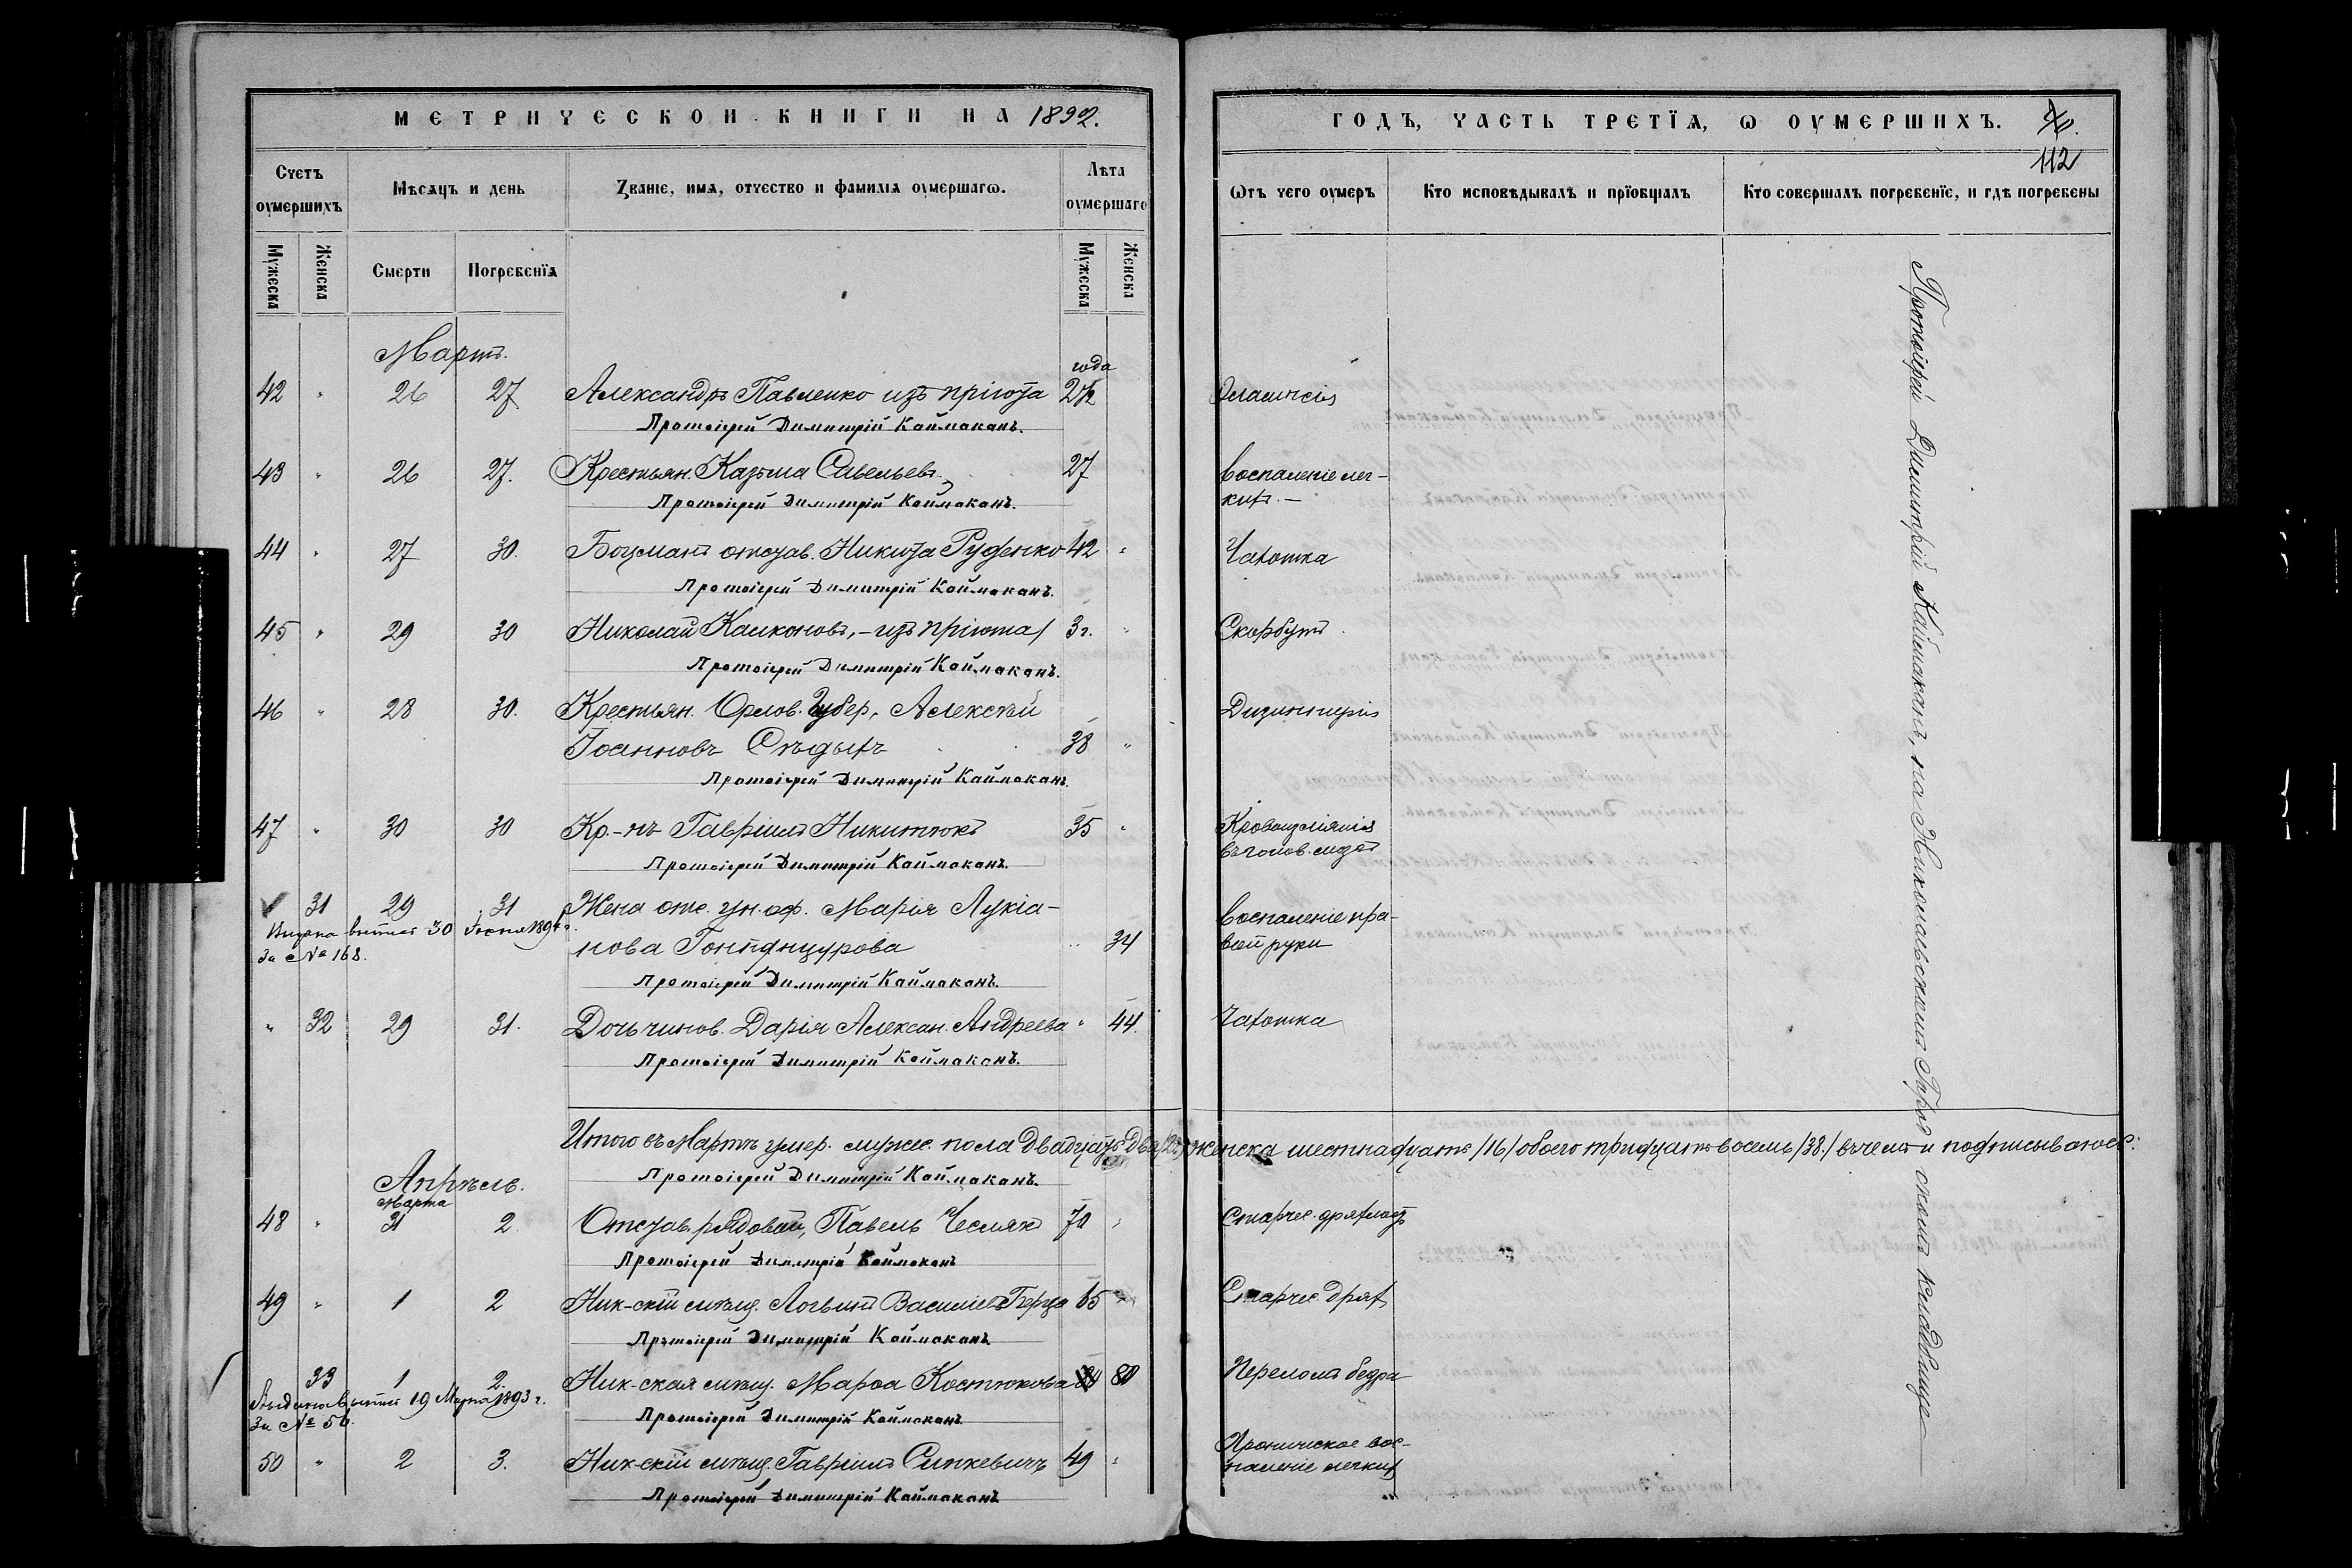 МЕТРИЧЕСКОЙ КНИГИ НА 1892.
Счетъ оумершихъ
Мѣсяцъ и день
Званіе, имя, отчество и фамилія оумершагѡ.
Лѣта оумершаго
Мужеска
Женска
Смерти
Погребенїя
Мужеска
Женска
Мартъ.
года
42 " 26 27 Александръ Павленко изъ пріюта 2½
Протоіерей Димитрій Каймаканъ.
43 " 26 27. Крестьян. Казьма Савельевъ. 27
Протоіерей Димитрій Каймаканъ.
44 " 27 30. Боцманъ отстав. Никита Руденко 42 "
Протоіерей Димитрій Каймаканъ.
45 " 29 30 Николай – изъ пріюта 3 г. "
Протоіерей Димитрій Каймаканъ.
46 " 28 30. Крестьян. Орлов. Губер. Алексѣй
Іоанновъ Сѣдыхъ 38 "
Протоіерей Димитрій Каймаканъ.
47 " 30 30 Кр.-нъ Гавріилъ Никитюкъ 35 "
Протоіерей Димитрій Каймаканъ.
31 29 31 Жена отс. ун. оф. Марія Лукіа-
30 1894 г.
за № 168.
нова 34
Протоіерей Димитрій Каймаканъ.
" 32 29 31. Дочь чинов. Дарія Алексан. Андреева " 44.
Протоіерей Димитрій Каймаканъ.
Итого въ Мартѣ умер. мужес. пола двадцать два /22/ женска шестнадцать /16/ обоего тридцать восемь /38./ въ чемъ и подписываюсь:
Протоіерей Димитрій Каймаканъ.
Апрѣль.
Марта
48 " 31 2. Отстав. рядовой, Павелъ Чесмякъ 70 "
Протоіерей Димитрій Каймаканъ
49 " 1 2 Ник-скій мѣщ. Логвинъ Василіевъ 65
Протоіерей Димитрій Каймаканъ
33 1 2. Ник-ская мѣщ. Марѳа Костюкова 80
19 Марта 1893 г.
За № 56.
Протоіерей Димитрій Каймаканъ
50 " 2 3. Ник-скій мѣщ. Гавріилъ Синкевичъ 49 "
Протоіерей Димитрій Каймаканъ
ГОДЪ, ЧАСТЬ ТРЕТЇЯ, Ѡ ОУМЕРШИХЪ.
112
Ѿтъ чего оумеръ
Кто исповѣдывалъ и прїобщалъ
Кто совершалъ погребенїе, и гдѣ погребены
Воспаленіе лег-
кихъ. –
Чахотка
Скорбутъ
Дизинтерія
Кровоизліяніе
въ голов. мозгъ
Воспаленіе пра-
вой руки
Чахотка
Старчес. дряхлость
Старчес. дрях.
Переломъ бедра
Хроническое вос-
паленіе легких
Протоіерей Димитрій Каймаканъ, на Николаевскомъ скомъ кладбище